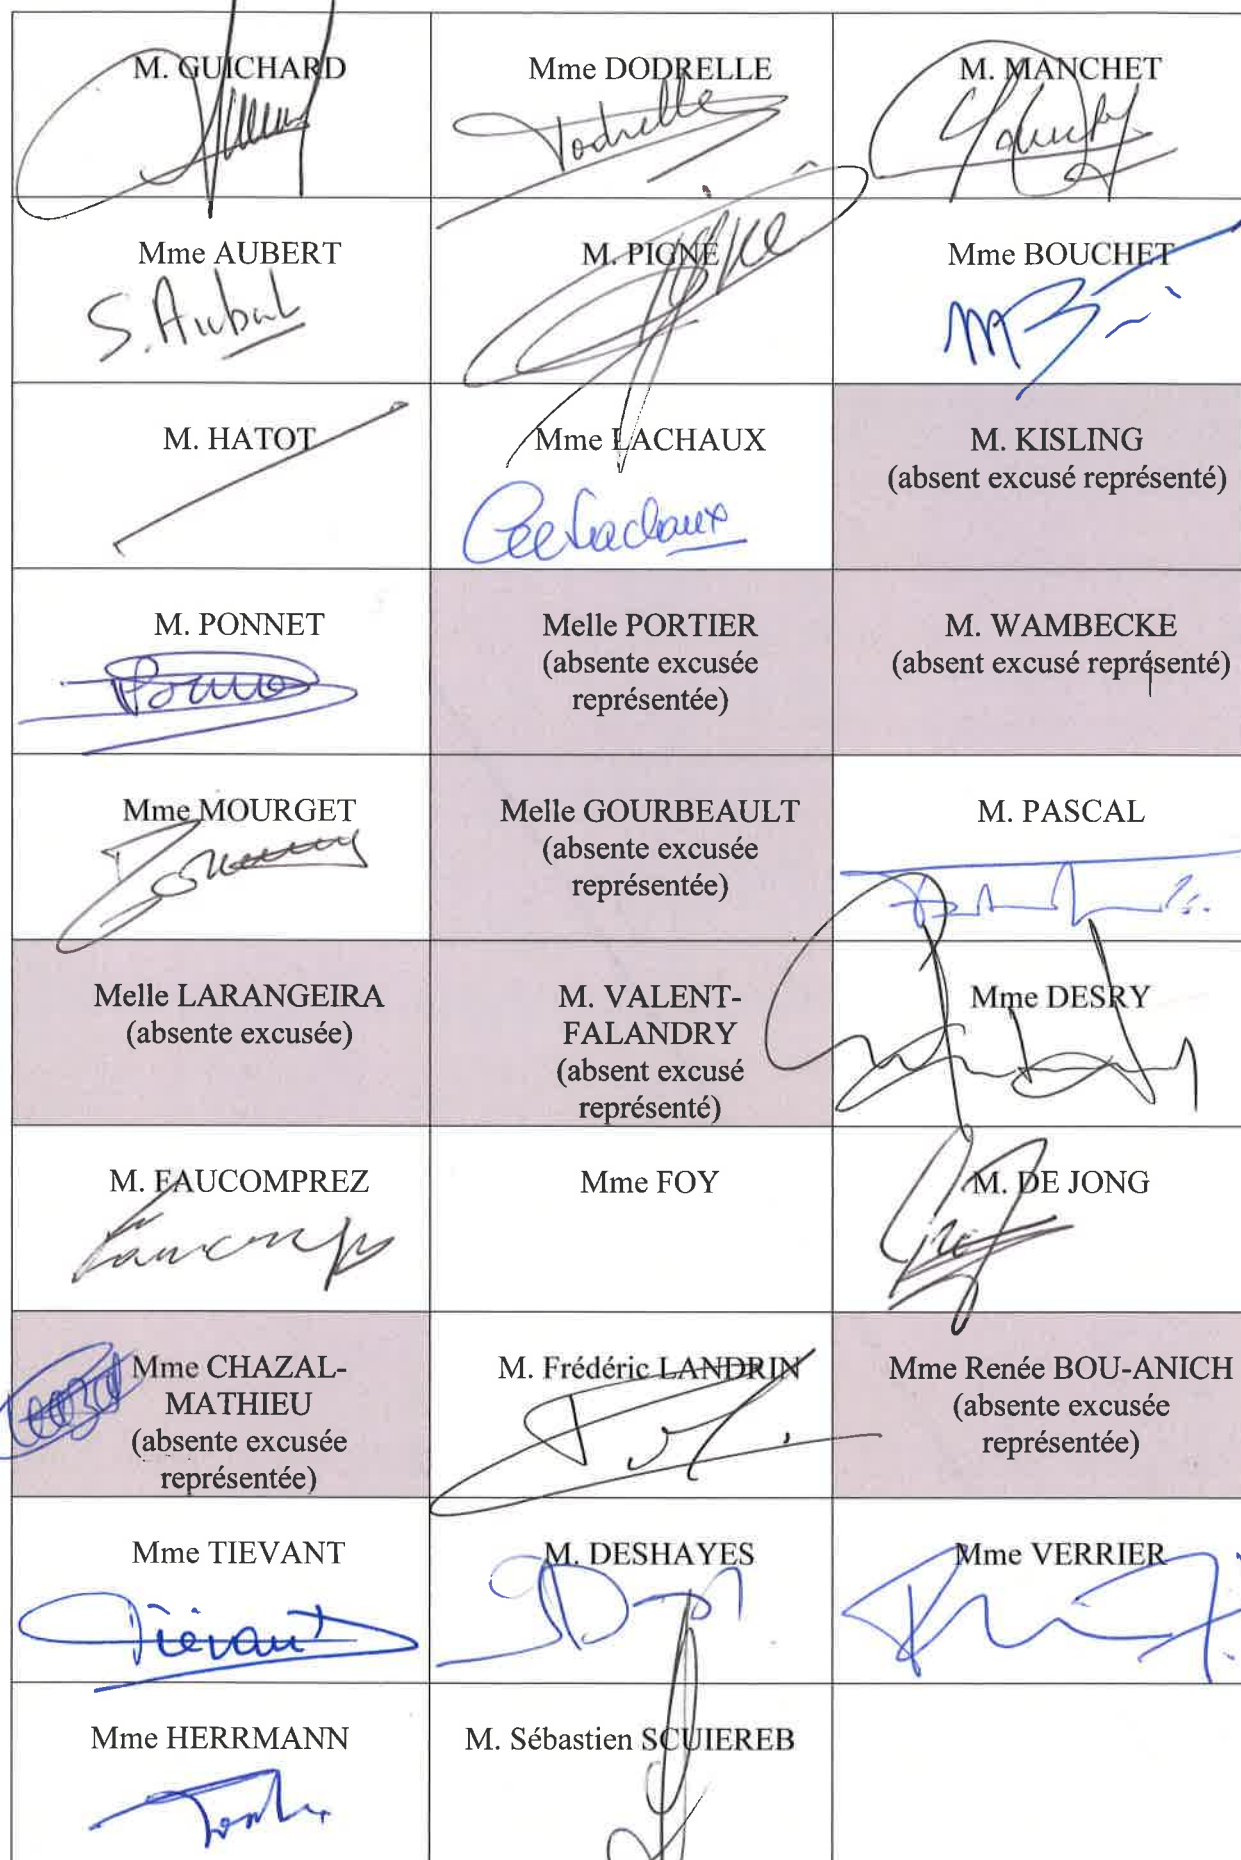 M. GUICHARD
Mme DODRELLE
M. MANCHET
Dodrelle
Mme AUBERT
M. PIGNÉ
Mme BOUCHET
S. Aubert
M. HATOT
Mme LACHAUX
M. KISLING
(absent excusé représenté)
M. PONNET
Melle PORTIER
(absente excusée
représentée)
M. WAMBECKE
(absent excusé représenté)
Mme MOURGET
Melle GOURBEAULT
(absente excusée
représentée)
M. PASCAL
Melle LARANGEIRA
(absente excusée)
M. VALENT-
FALANDRY
(absent excusé
représenté)
Mme DESRY
M. FAUCOMPREZ
Mme FOY
M. DE JONG
Mme CHAZAL-
MATHIEU
(absente excusée
représentée)
M. Frédéric LANDRIN
Mme Renée BOU-ANICH
(absente excusée
représentée)
Mme TIEVANT
M. DESHAYES
Mme VERRIER
Tiévant
Mme HERRMANN
M. Sébastien SCUIEREB